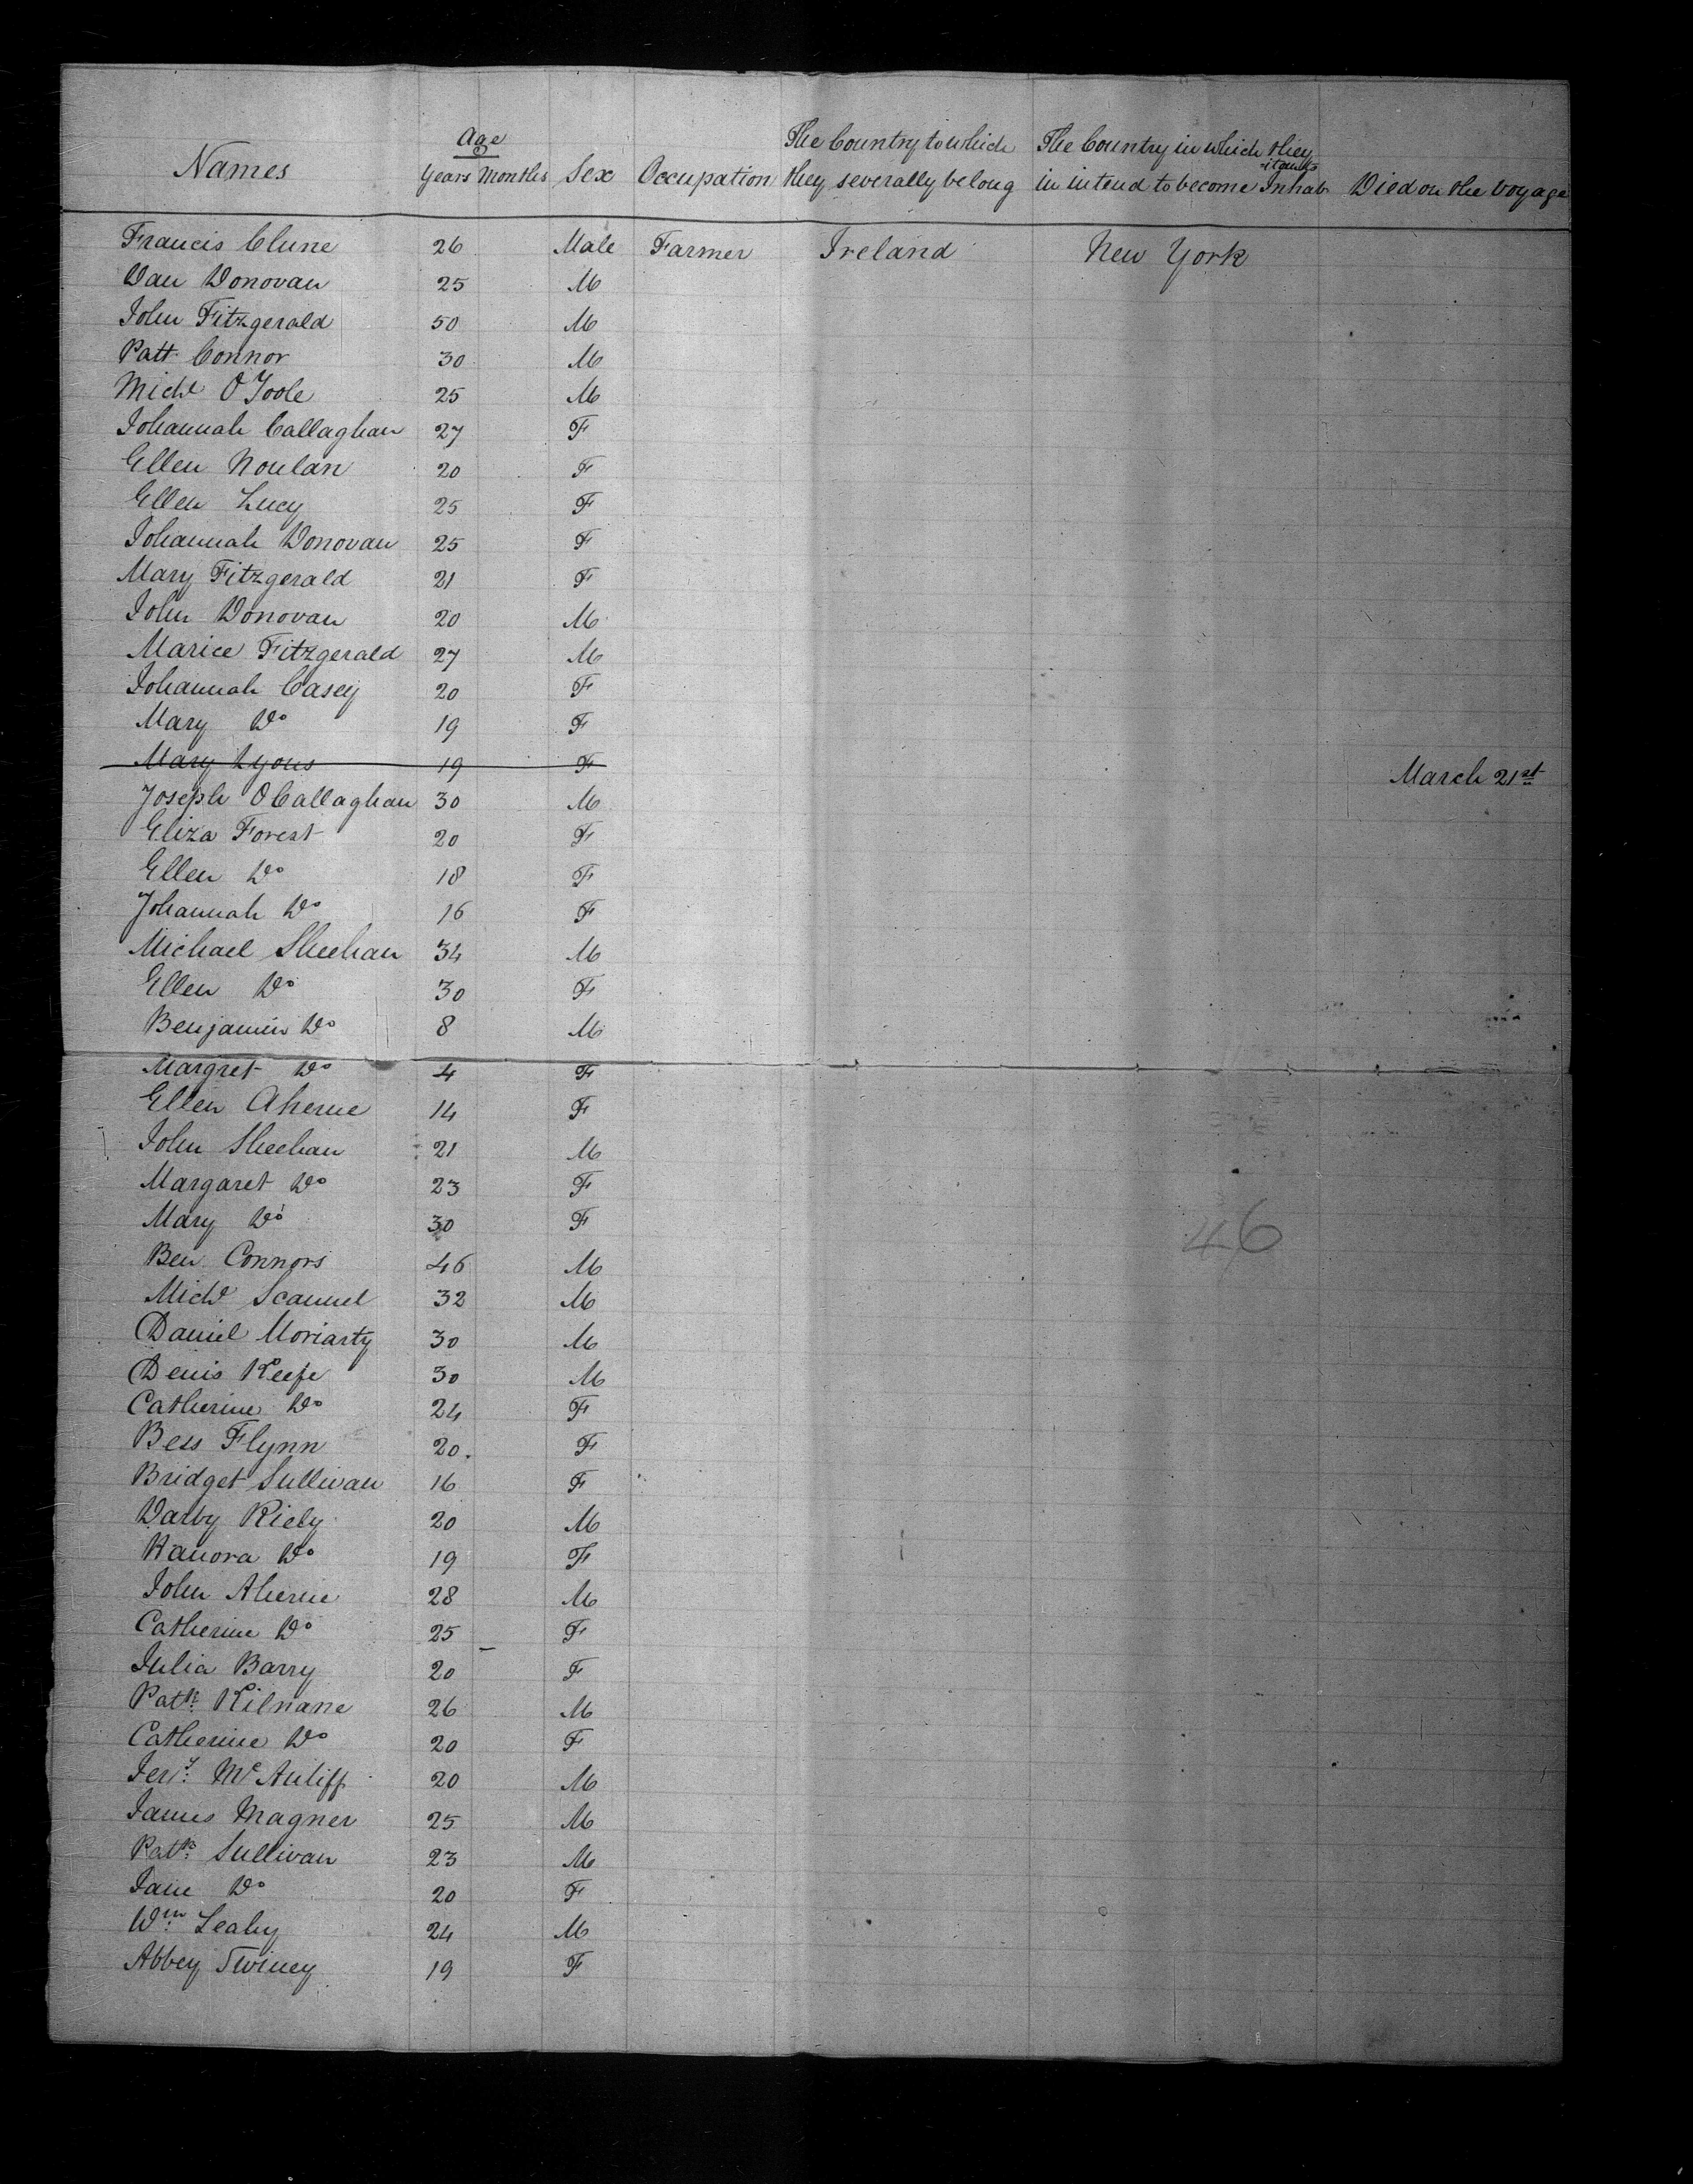 Names Age Years Months Sex Occupation The Country to which they severally belong The Country in which they in intend to become Inhab-itants Died on the voyage
Francis Clune 26 Male Farmer Ireland New York
Dan Donovan 25 M
John Fitzgerald 50 M
Patt Connor 30 M
Michl O Toole 25 M
Johannah Callaghan 27 F
Ellen Noulan 20 F
Ellen Lucy 25 F
Johannah Donovan 25 F
Mary Fitzgerald 21 F
John Donovan 20 M
Marice Fitzgerald 27 M
Johannah Casey 20 F
Mary Do 19 F
Mary Lyons 19 F March 21st
Joseph OCallaghan 30 M
Eliza Forest 20 F
Ellen Do 18 F
Johannah Do 16 F
Michael Sheehan 34 M
Ellen Do 30 F
Benjamin Do 8 M
Margret Do 4 F
Ellen Aherne 14 F
John Sheehan 21 M
Margaret Do 23 F
Mary Do 30 F
46
Ben Connors 46 M
Michl Scannel 32 M
Daniel Moriarty 30 M
Denis Keefe 30 M
Catherine Do 24 F
Bess Flynn 20. F
Bridget Sullivan 16 F
Darby Riely 20 M
Hanora Do 19 F
John Aherne 28 M
Catherine Do 25 F
Julia Barry 20 F
Patk Kilnane 26 M
Catherine Do 20 F
Jery McAuliff 20 M
James Magner 25 M
Patk Sullivan 23 M
Jane Do 20 F
Wm Leahy 24 M
Abbey Twiney 19 F